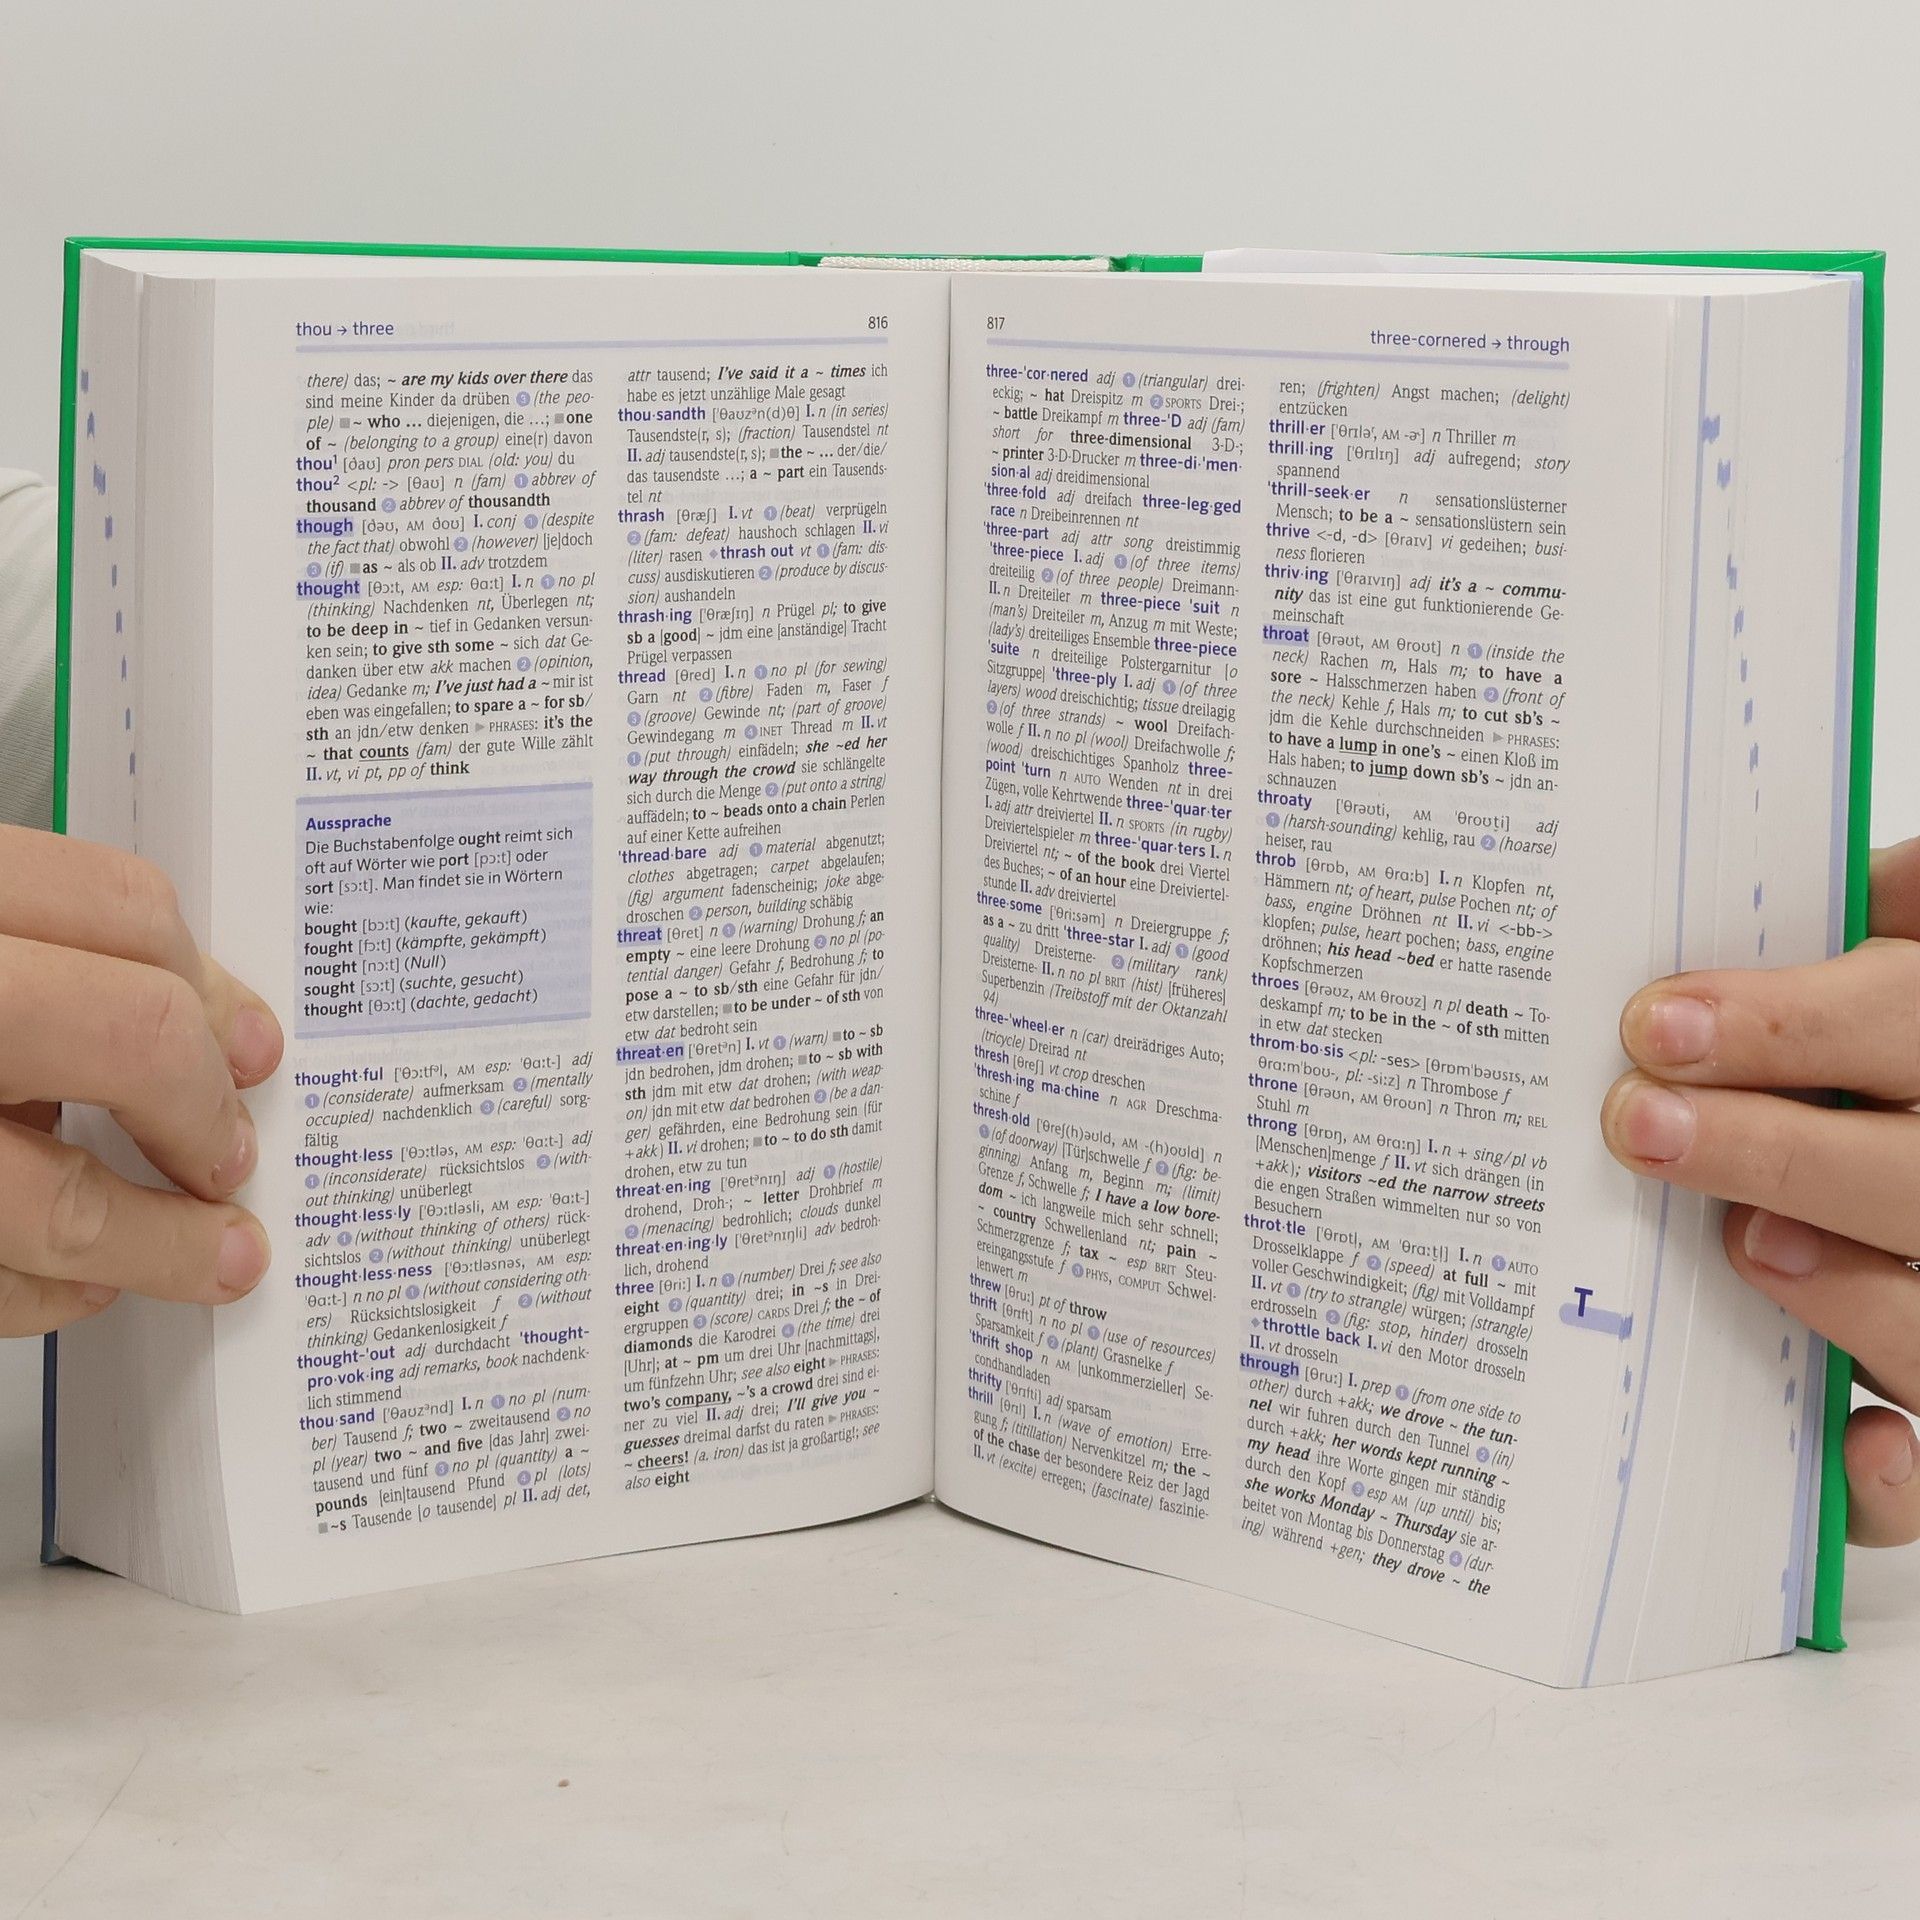 thou → three
816
there) das; ~ are my kids over there das
sind meine Kinder da drüben ③ (the peo-
ple) ■ ~ who … diejenigen, die …; ■ one
of ~ (belonging to a group) eine(r) davon
thou¹ [ðaʊ] pron pers DIAL (old: you) du
thou² <pl: -> [θaʊ] n (fam) ① abbrev of
thousand ② abbrev of thousandth
though [ðəʊ, AM ðoʊ] I. conj ① (despite
the fact that) obwohl ② (however) [je]doch
③ (if) ■ as ~ als ob II. adv trotzdem
thought [θɔ:t, AM esp: θɑ:t] I. n ① no pl
(thinking) Nachdenken nt, Überlegen nt;
to be deep in ~ tief in Gedanken versun-
ken sein; to give sth some ~ sich dat Ge-
danken über etw akk machen ② (opinion,
idea) Gedanke m; I've just had a ~ mir ist
eben was eingefallen; to spare a ~ for sb/
sth an jdn/etw denken ▶ PHRASES: it's the
~ that counts (fam) der gute Wille zählt
II. vt, vi pt, pp of think
Aussprache
Die Buchstabenfolge ought reimt sich
oft auf Wörter wie port [pɔ:t] oder
sort [sɔ:t]. Man findet sie in Wörtern
wie:
bought [bɔ:t] (kaufte, gekauft)
fought [fɔ:t] (kämpfte, gekämpft)
nought [nɔ:t] (Null)
sought [sɔ:t] (suchte, gesucht)
thought [θɔ:t] (dachte, gedacht)
thought·ful ['θɔ:tfᵊl, AM esp: 'θɑ:t-] adj
① (considerate) aufmerksam ② (mentally
occupied) nachdenklich ③ (careful) sorg-
fältig
thought·less ['θɔ:tləs, AM esp: 'θɑ:t-] adj
① (inconsiderate) rücksichtslos ② (with-
out thinking) unüberlegt
thought·less·ly ['θɔ:tləsli, AM esp: 'θɑ:t-]
adv ① (without thinking of others) rück-
sichtslos ② (without thinking) unüberlegt
thought·less·ness ['θɔ:tləsnəs, AM esp:
'θɑ:t-] n no pl ① (without considering oth-
ers) Rücksichtslosigkeit f ② (without
thinking) Gedankenlosigkeit f
thought-'out adj durchdacht 'thought-
pro·vok·ing adj remarks, book nachdenk-
lich stimmend
thou·sand ['θaʊzᵊnd] I. n ① no pl (num-
ber) Tausend f; two ~ zweitausend ② no
pl (year) two ~ and five [das Jahr] zwei-
tausend und fünf ③ no pl (quantity) a ~
pounds [ein]tausend Pfund ④ pl (lots)
■ ~s Tausende [o tausende] pl II. adj det,
attr tausend; I've said it a ~ times ich
habe es jetzt unzählige Male gesagt
thou·sandth ['θaʊzᵊn(d)θ] I. n (in series)
Tausendste(r, s); (fraction) Tausendstel nt
II. adj tausendste(r, s); ■ the ~ … der/die/
das tausendste …; a ~ part ein Tausends-
tel nt
thrash [θræʃ] I. vt ① (beat) verprügeln
② (fam: defeat) haushoch schlagen II. vi
(liter) rasen ◆ thrash out vt ① (fam: dis-
cuss) ausdiskutieren ② (produce by discus-
sion) aushandeln
thrash·ing ['θræʃɪŋ] n Prügel pl; to give
sb a [good] ~ jdm eine [anständige] Tracht
Prügel verpassen
thread [θred] I. n ① no pl (for sewing)
Garn nt ② (fibre) Faden m, Faser f
③ (groove) Gewinde nt; (part of groove)
Gewindegang m ④ INET Thread m II. vt
① (put through) einfädeln; she ~ed her
way through the crowd sie schlängelte
sich durch die Menge ② (put onto a string)
auffädeln; to ~ beads onto a chain Perlen
auf einer Kette aufreihen
'thread·bare adj ① material abgenutzt;
clothes abgetragen; carpet abgelaufen;
(fig) argument fadenscheinig; joke abge-
droschen ② person, building schäbig
threat [θret] n ① (warning) Drohung f; an
empty ~ eine leere Drohung ② no pl (po-
tential danger) Gefahr f, Bedrohung f; to
pose a ~ to sb/sth eine Gefahr für jdn/
etw darstellen; ■ to be under ~ of sth von
etw dat bedroht sein
threat·en ['θretᵊn] I. vt ① (warn) ■ to ~ sb
jdn bedrohen, jdm drohen; ■ to ~ sb with
sth jdm mit etw dat drohen; (with weap-
on) jdn mit etw dat bedrohen ② (be a dan-
ger) gefährden, eine Bedrohung sein (für
+akk) II. vi drohen; ■ to ~ to do sth damit
drohen, etw zu tun
threat·en·ing ['θretᵊnɪŋ] adj ① (hostile)
drohend, Droh-; ~ letter Drohbrief m
② (menacing) bedrohlich; clouds dunkel
threat·en·ing·ly ['θretᵊnɪŋli] adv bedroh-
lich, drohend
three [θri:] I. n ① (number) Drei f; see also
eight ② (quantity) drei; in ~s in Drei-
ergruppen ③ (score) CARDS Drei f; the ~ of
diamonds die Karodrei ④ (the time) drei
[Uhr]; at ~ pm um drei Uhr [nachmittags],
um fünfzehn Uhr; see also eight ▶ PHRASES:
two's company, ~'s a crowd drei sind ei-
ner zu viel II. adj drei; I'll give you ~
guesses dreimal darfst du raten ▶ PHRASES:
~ cheers! (a. iron) das ist ja großartig!; see
also eight
817
three-cornered → through
three-'cor·nered adj ① (triangular) drei-
eckig; ~ hat Dreispitz m ② SPORTS Drei-;
~ battle Dreikampf m three-'D adj (fam)
short for three-dimensional 3-D-;
~ printer 3-D-Drucker m three-di·'men·
sion·al adj dreidimensional
'three·fold adj dreifach three-leg·ged
race n Dreibeinrennen nt
'three-part adj attr song dreistimmig
'three-piece I. adj ① (of three items)
dreiteilig ② (of three people) Dreimann-
II. n Dreiteiler m three-piece 'suit n
(man's) Dreiteiler m, Anzug m mit Weste;
(lady's) dreiteiliges Ensemble three-piece
'suite n dreiteilige Polstergarnitur [o
Sitzgruppe] 'three-ply I. adj ① (of three
layers) wood dreischichtig; tissue dreilagig
② (of three strands) ~ wool Dreifach-
wolle f II. n no pl (wool) Dreifachwolle f;
(wood) dreischichtiges Spanholz three-
point 'turn n AUTO Wenden nt in drei
Zügen, volle Kehrtwende three-'quar·ter
I. adj attr dreiviertel II. n SPORTS (in rugby)
Dreiviertelspieler m three-'quar·ters I. n
Dreiviertel nt; ~ of the book drei Viertel
des Buches; ~ of an hour eine Dreiviertel-
stunde II. adv dreiviertel
three·some ['θri:səm] n Dreiergruppe f;
as a ~ zu dritt 'three-star I. adj ① (good
quality) Dreisterne- ② (military rank)
Dreisterne- II. n no pl BRIT (hist) [früheres]
Superbenzin (Treibstoff mit der Oktanzahl
94)
three-'wheel·er n (car) dreirädriges Auto;
(tricycle) Dreirad nt
thresh [θreʃ] vt crop dreschen
'thresh·ing ma·chine n AGR Dreschma-
schine f
thresh·old ['θreʃ(h)əʊld, AM -(h)oʊld] n
① (of doorway) [Tür]schwelle f ② (fig: be-
ginning) Anfang m, Beginn m; (limit)
Grenze f, Schwelle f; I have a low bore-
dom ~ ich langweile mich sehr schnell;
~ country Schwellenland nt; pain ~
Schmerzgrenze f; tax ~ esp BRIT Steu-
ereingangsstufe f ③ PHYS, COMPUT Schwel-
lenwert m
threw [θru:] pt of throw
thrift [θrɪft] n no pl ① (use of resources)
Sparsamkeit f ② (plant) Grasnelke f
'thrift shop n AM [unkommerzieller] Se-
condhandladen
thrifty ['θrɪfti] adj sparsam
thrill [θrɪl] I. n (wave of emotion) Erre-
gung f; (titillation) Nervenkitzel m; the ~
of the chase der besondere Reiz der Jagd
II. vt (excite) erregen; (fascinate) faszinie-
ren; (frighten) Angst machen; (delight)
entzücken
thrill·er ['θrɪləʳ, AM -ɚ] n Thriller m
thrill·ing ['θrɪlɪŋ] adj aufregend; story
spannend
'thrill-seek·er n sensationslüsterner
Mensch; to be a ~ sensationslüstern sein
thrive <-d, -d> [θraɪv] vi gedeihen; busi-
ness florieren
thriv·ing ['θraɪvɪŋ] adj it's a ~ commu-
nity das ist eine gut funktionierende Ge-
meinschaft
throat [θrəʊt, AM θroʊt] n ① (inside the
neck) Rachen m, Hals m; to have a
sore ~ Halsschmerzen haben ② (front of
the neck) Kehle f, Hals m; to cut sb's ~
jdm die Kehle durchschneiden ▶ PHRASES:
to have a lump in one's ~ einen Kloß im
Hals haben; to jump down sb's ~ jdn an-
schnauzen
throaty ['θrəʊti, AM 'θroʊt̬i] adj
① (harsh-sounding) kehlig, rau ② (hoarse)
heiser, rau
throb [θrɒb, AM θrɑ:b] I. n Klopfen nt,
Hämmern nt; of heart, pulse Pochen nt; of
bass, engine Dröhnen nt II. vi <-bb->
klopfen; pulse, heart pochen; bass, engine
dröhnen; his head ~bed er hatte rasende
Kopfschmerzen
throes [θrəʊz, AM θroʊz] n pl death ~ To-
deskampf m; to be in the ~ of sth mitten
in etw dat stecken
throm·bo·sis <pl: -ses> [θrɒm'bəʊsɪs, AM
θrɑ:m'boʊ-, pl: -si:z] n Thrombose f
throne [θrəʊn, AM θroʊn] n Thron m; REL
Stuhl m
throng [θrɒŋ, AM θrɑ:ŋ] I. n + sing/pl vb
[Menschen]menge f II. vt sich drängen (in
+akk); visitors ~ed the narrow streets
die engen Straßen wimmelten nur so von
Besuchern
throt·tle ['θrɒtl, AM 'θrɑ:t̬l] I. n ① AUTO
Drosselklappe f ② (speed) at full ~ mit
voller Geschwindigkeit; (fig) mit Volldampf
II. vt ① (try to strangle) würgen; (strangle)
erdrosseln ② (fig: stop, hinder) drosseln
◆ throttle back I. vi den Motor drosseln
II. vt drosseln
through [θru:] I. prep ① (from one side to
other) durch +akk; we drove ~ the tun-
nel wir fuhren durch den Tunnel ② (in)
durch +akk; her words kept running ~
my head ihre Worte gingen mir ständig
durch den Kopf ③ esp AM (up until) bis;
she works Monday ~ Thursday sie ar-
beitet von Montag bis Donnerstag ④ (dur-
ing) während +gen; they drove ~ the
T